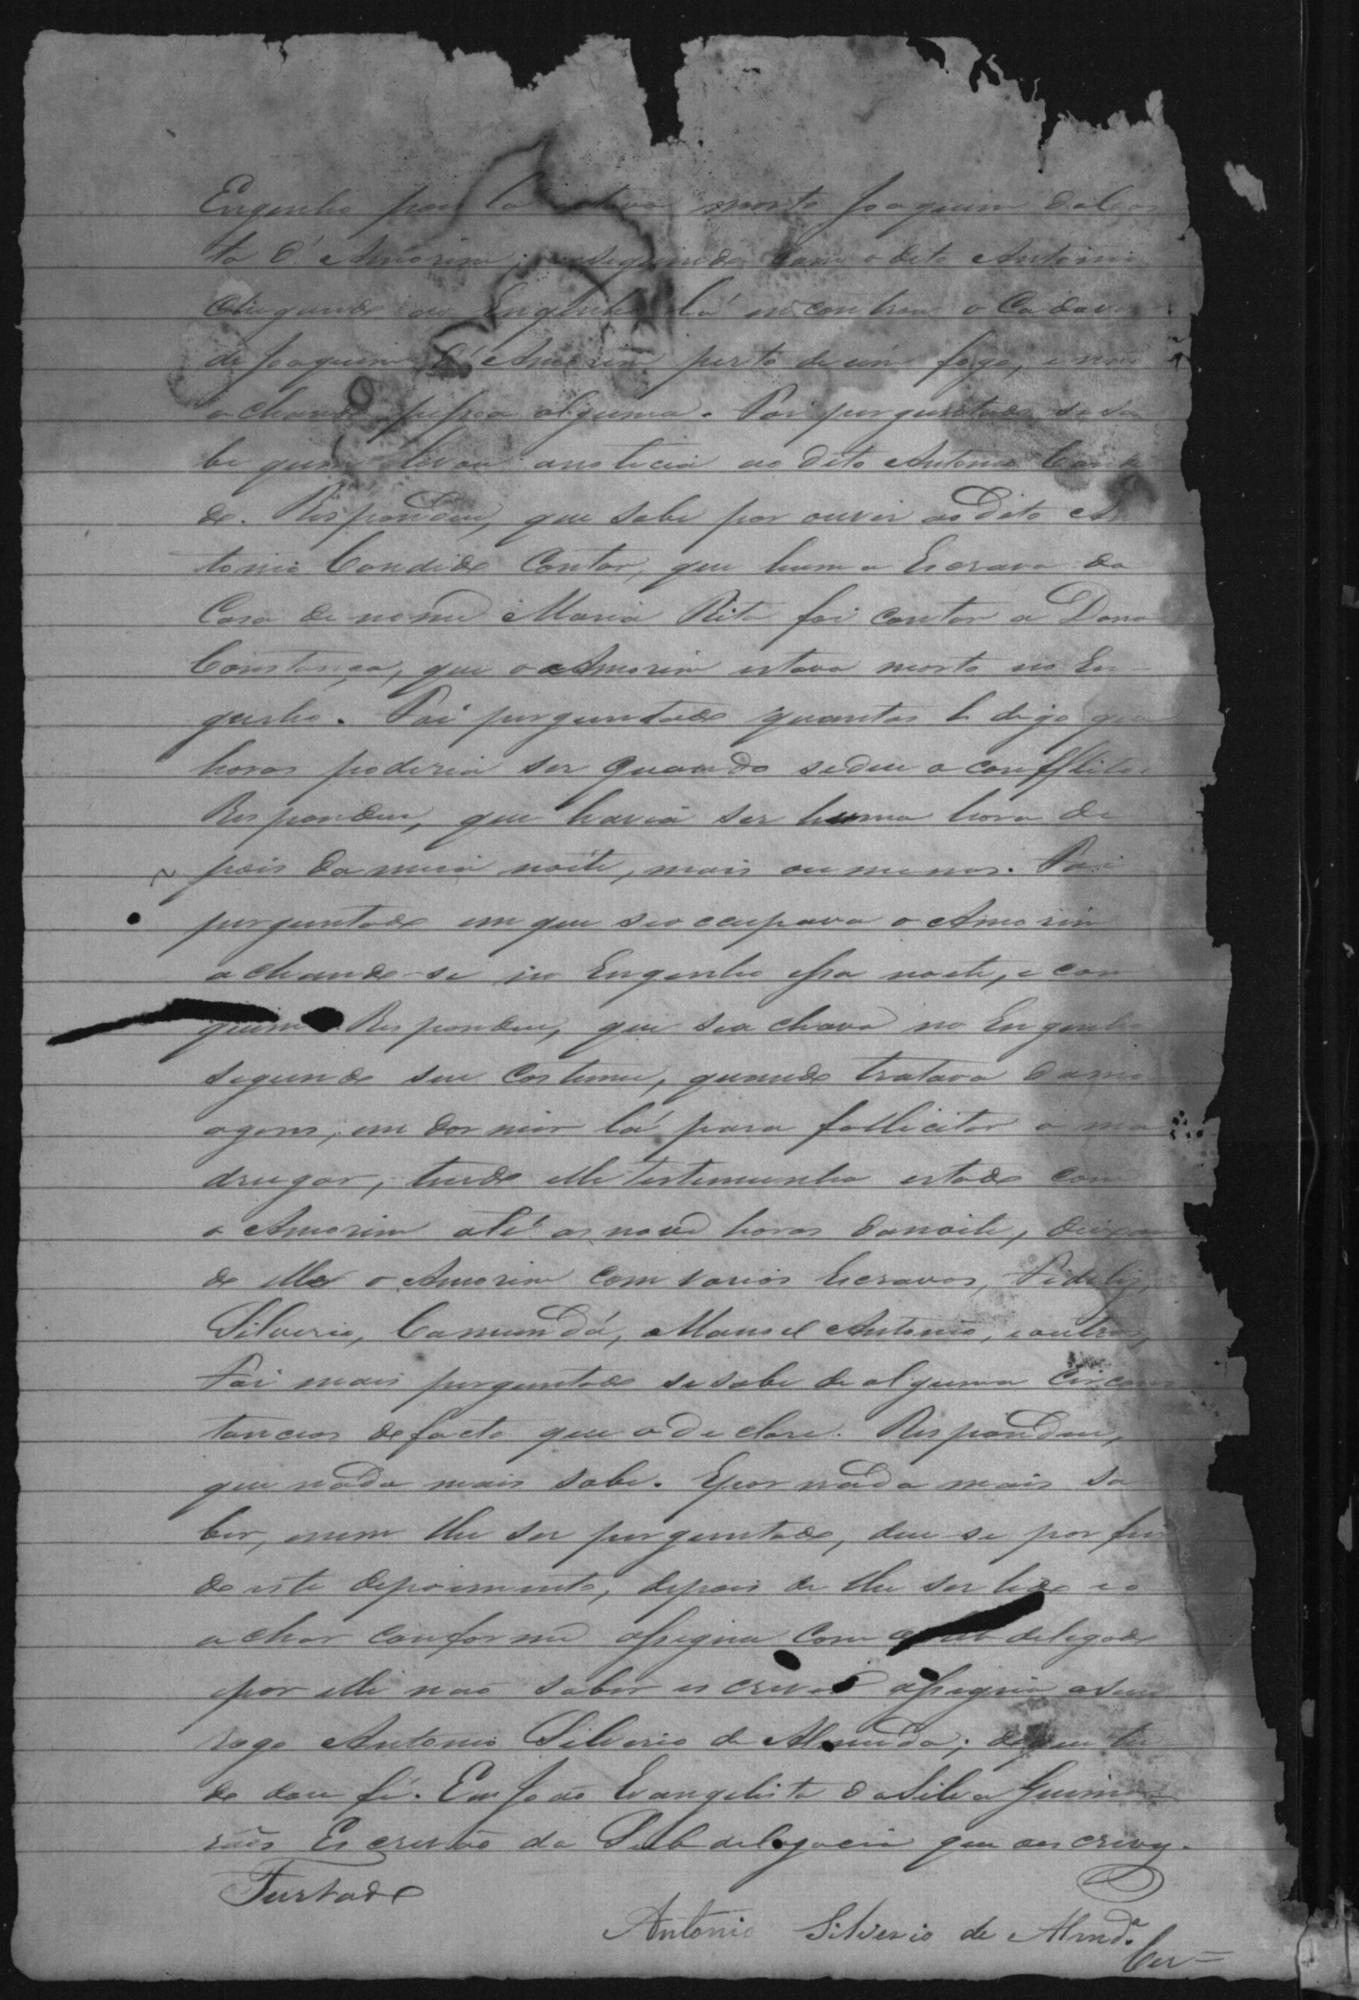 Engenho para lá estava morto Joaquim da Cos
ta d'Amorim; e seguindo com o dito Antonio
chegando ao Engenho lá encontrou o Cadaver
de Joaquim d'Amorim perto de um fogo, e não
achando pessoa alguma. Foi perguntado se sa
be quem levou a noticia ao dito Antonio Candi
do. Respondeu, que sabe por ouvir ao dito An
tonio Candido Contar, que huma Escrava da
Casa de nome Maria Rita foi contar a Dona
Constança, que o Amorim estava morto no En
genho. Foi perguntado quantas h digo que
horas poderia ser quando se deu o confflito.
Respondeu, que havia ser huma hora de
pois da meia noite, mais ou menos. Foi
perguntado em que se occupava o Amorim
achando-se no Engenho essa noite, e com
quem. Respondeu, que se achava no Engenho
segundo seu costume, quando tratava da mo
agem, em dormir lá para follicitar a ma
drugar, tendo elle testemunha estado com
o Amorim até as nove horas da noite, deixan
do elle o Amorim com varios Escravos, Fideliz,
Silverio, Camundá, Manoel Antonio, e outros,
Foi mais perguntado se sabe de alguma circuns
tancias do facto que o declare. Respondeu,
que nada mais sabe. E por nada mais sa
ber, e nem lhe ser perguntado, deu-se por fin
do este depoimento, depois de lhe ser lido e o
achar conforme assigna com o Subdelegado
e por elle não saber escrever assigna a seu
rogo Antonio Silverio de Almeida; do que tu
do dou fé. Eu João Evangelista da Silva Guima
rães Escrivão da Subdelegacia que o escrevy.
Furtado
Antonio Silverio de Almdª.